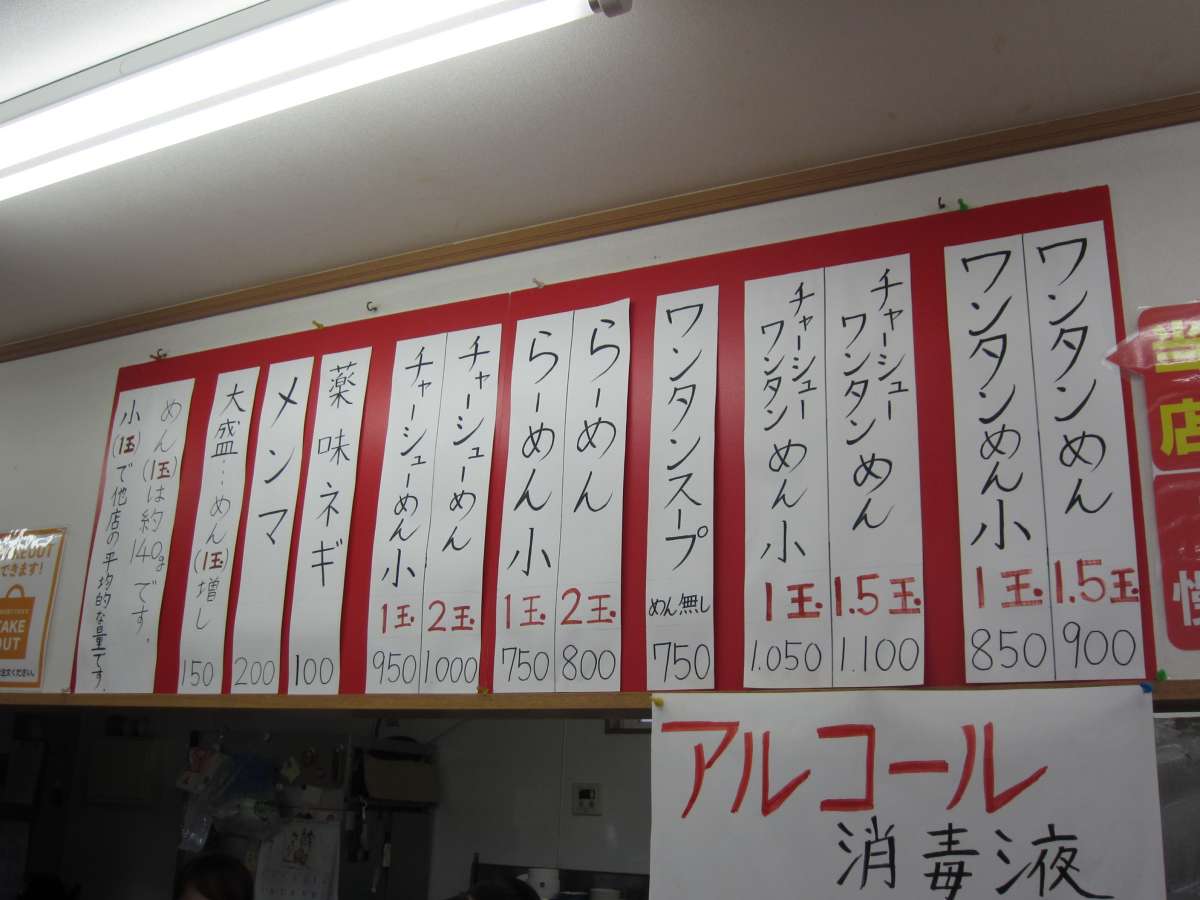 ワンタンめん 1.5玉 900
ワンタンめん小 1玉 850
チャーシュー
ワンタンめん 1.5玉 1.100
チャーシュー
ワンタンめん小 1玉 1.050
ワンタンスープ めん無し 750
らーめん 2玉 800
らーめん小 1玉 750
チャーシューめん 2玉 1000
チャーシューめん小 1玉 950
薬味ネギ 100
メンマ 200
大盛…めん(1玉)増し 150
めん(1玉)は約140gです.
小(1玉)で他店の平均的な量です.
アルコール
消毒液
できます!
TAKE
OUT
店